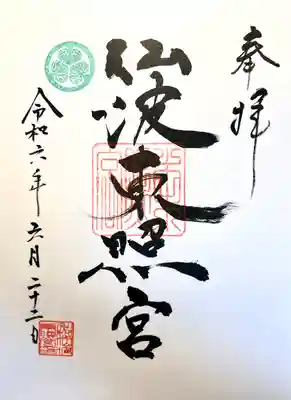 奉拝
仙波東照宮
令和六年六月二十二日